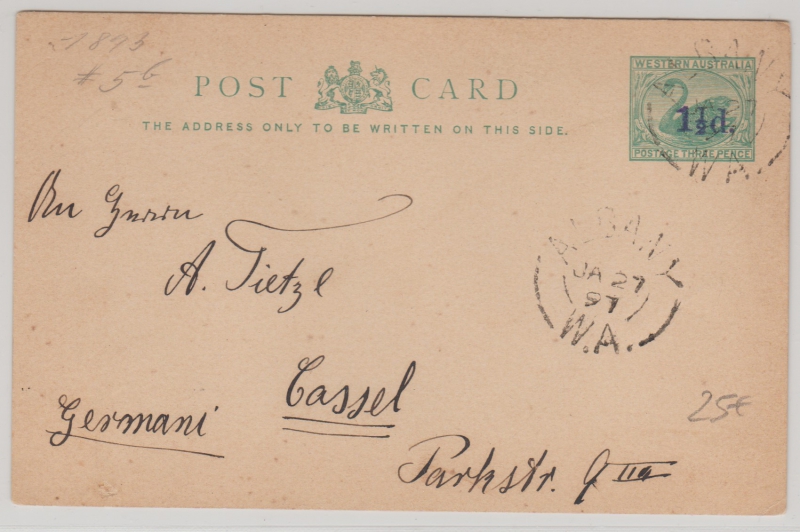 1893
#5b
POST CARD
THE ADDRESS ONLY TO BE WRITTEN ON THIS SIDE.
WESTERN AUSTRALIA
1½d.
POSTAGE THREE PENCE
ALBANY
W.A.
ALBANY
JA 27
97
W.A.
An Herrn
A. Tietze
Cassel
Germani
Parkstr. 9 IIa
25€